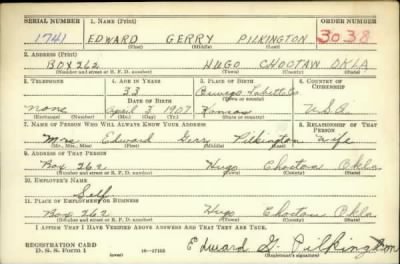 SERIAL NUMBER 1. NAME (Print) ORDER NUMBER
1741 EDWARD GERRY PILKINGTON 3038
(First) (Middle) (Last)
2. ADDRESS (Print)
BOX 262 HUGO CHOCTAW OKLA
(Number and street or R. F. D. number) (Town) (County) (State)
3. TELEPHONE 4. AGE IN YEARS 5. PLACE OF BIRTH 6. COUNTRY OF CITIZENSHIP
33 Oswego Labette
DATE OF BIRTH (Town or county)
none April 3 1907 Kansas U.S.A.
(Exchange) (Number) (Mo.) (Day) (Yr.) (State or country)
7. NAME OF PERSON WHO WILL ALWAYS KNOW YOUR ADDRESS 8. RELATIONSHIP OF THAT PERSON
Mrs. Edward Gerry Pilkington Wife
(Mr., Mrs., Miss) (First) (Middle) (Last)
9. ADDRESS OF THAT PERSON
Box 262 Hugo Choctaw Okla
(Number and street or R. F. D. number) (Town) (County) (State)
10. EMPLOYER'S NAME
Self
11. PLACE OF EMPLOYMENT OR BUSINESS
Box 262 Hugo Choctaw Okla
(Number and street or R. F. D. number) (Town) (County) (State)
I AFFIRM THAT I HAVE VERIFIED ABOVE ANSWERS AND THAT THEY ARE TRUE.
REGISTRATION CARD
D. S. S. Form 1 (over) Edward G. Pilkington
(Registrant's signature)